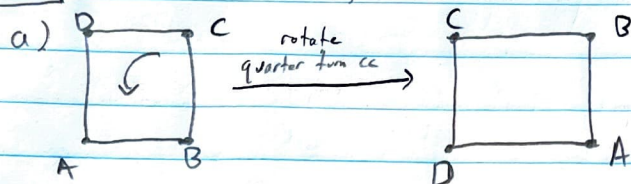 a)
D C
A B
rotate
quarter turn cc
C B
D A